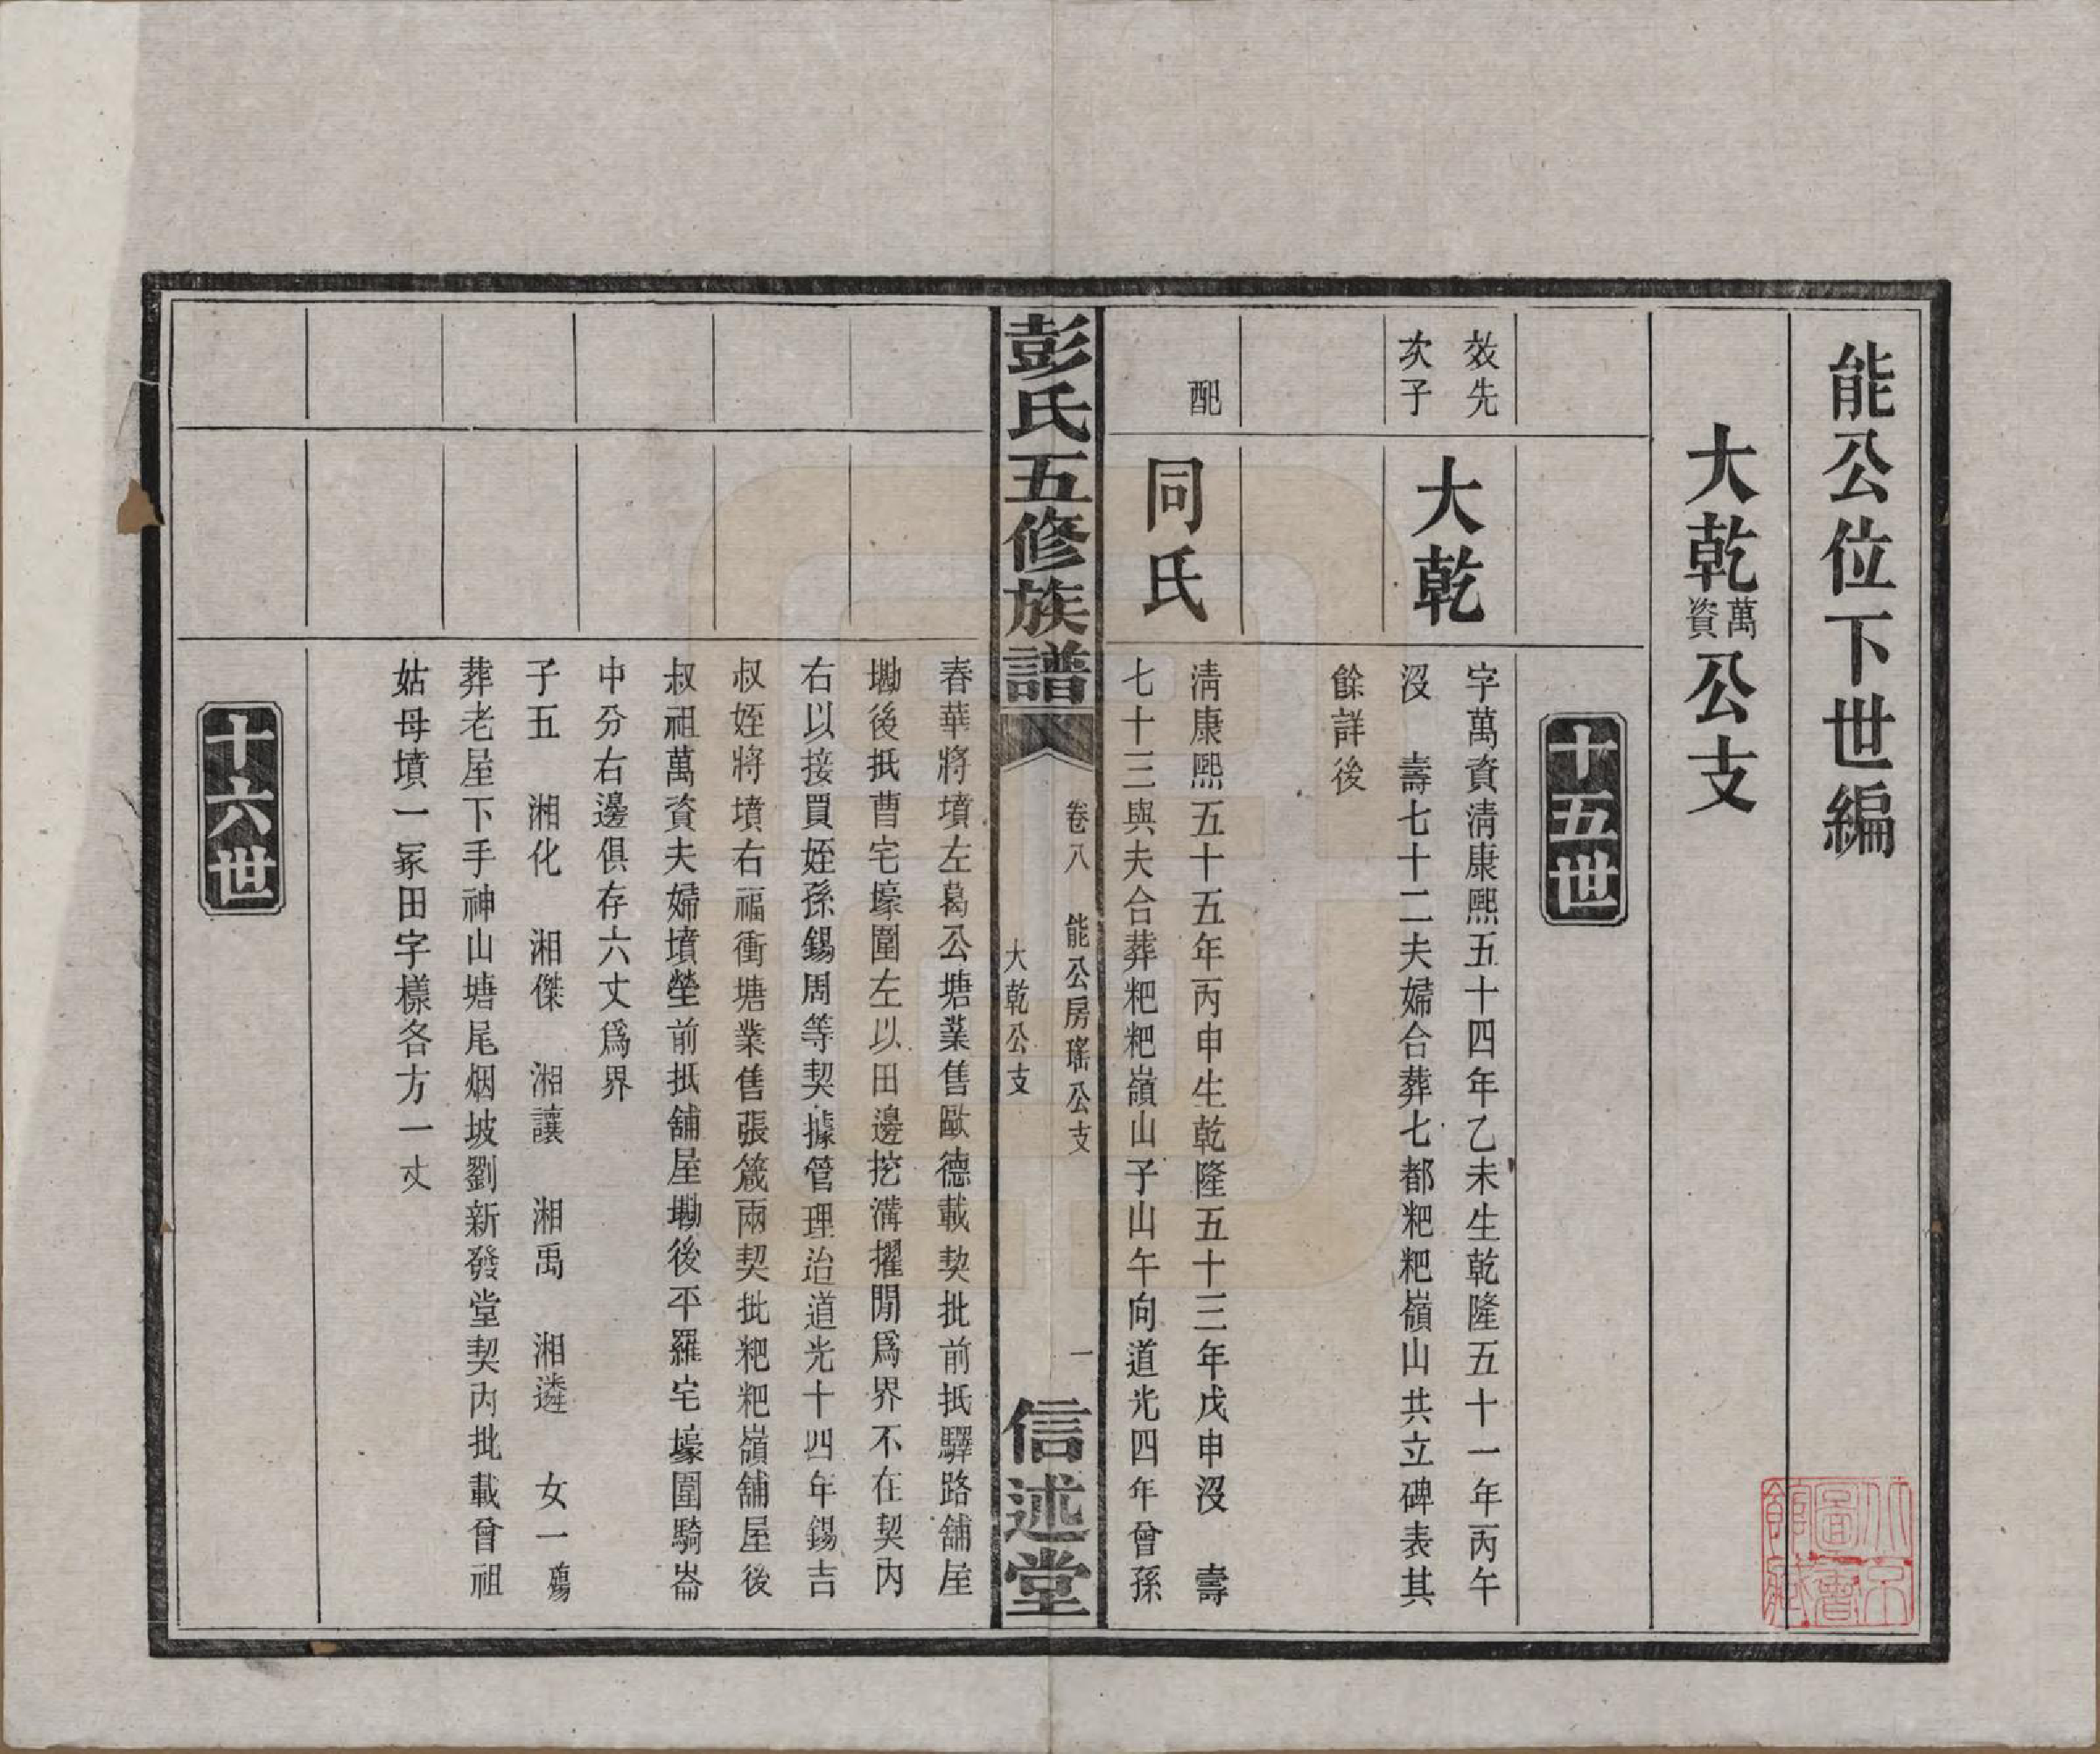 能公位下世編
大乾萬資公支
十五世
效先
次子
大乾
字萬資清康熙五十四年乙未生乾隆五十一年丙午
沒　壽七十二夫婦合葬七都粑粑嶺山共立碑表其
餘詳後
配
同氏
清康熙五十五年丙申生乾隆五十三年戊申沒　壽
七十三與夫合葬粑粑嶺山子山午向道光四年曾孫
彭氏五修族譜
卷八　能公房瑤公支
大乾公支
一
信述堂
春華將墳左葛公塘業售歐德載契批前抵驛路舖屋
墈後抵曹宅壕圍左以田邊挖溝擢閒爲界不在契內
右以接買姪孫錫周等契據管理治道光十四年錫吉
叔姪將墳右福衝塘業售張箴兩契批粑粑嶺舖屋後
叔祖萬資夫婦墳塋前抵舖屋墈後平羅宅壕圍騎崙
中分右邊俱存六丈爲界
子五　湘化　湘傑　湘讓　湘禹　湘遴　女一殤
葬老屋下手神山塘尾烟坡劉新發堂契內批載曾祖
姑母墳一冢田字樣各方一丈
十六世
北京
圖書
館藏